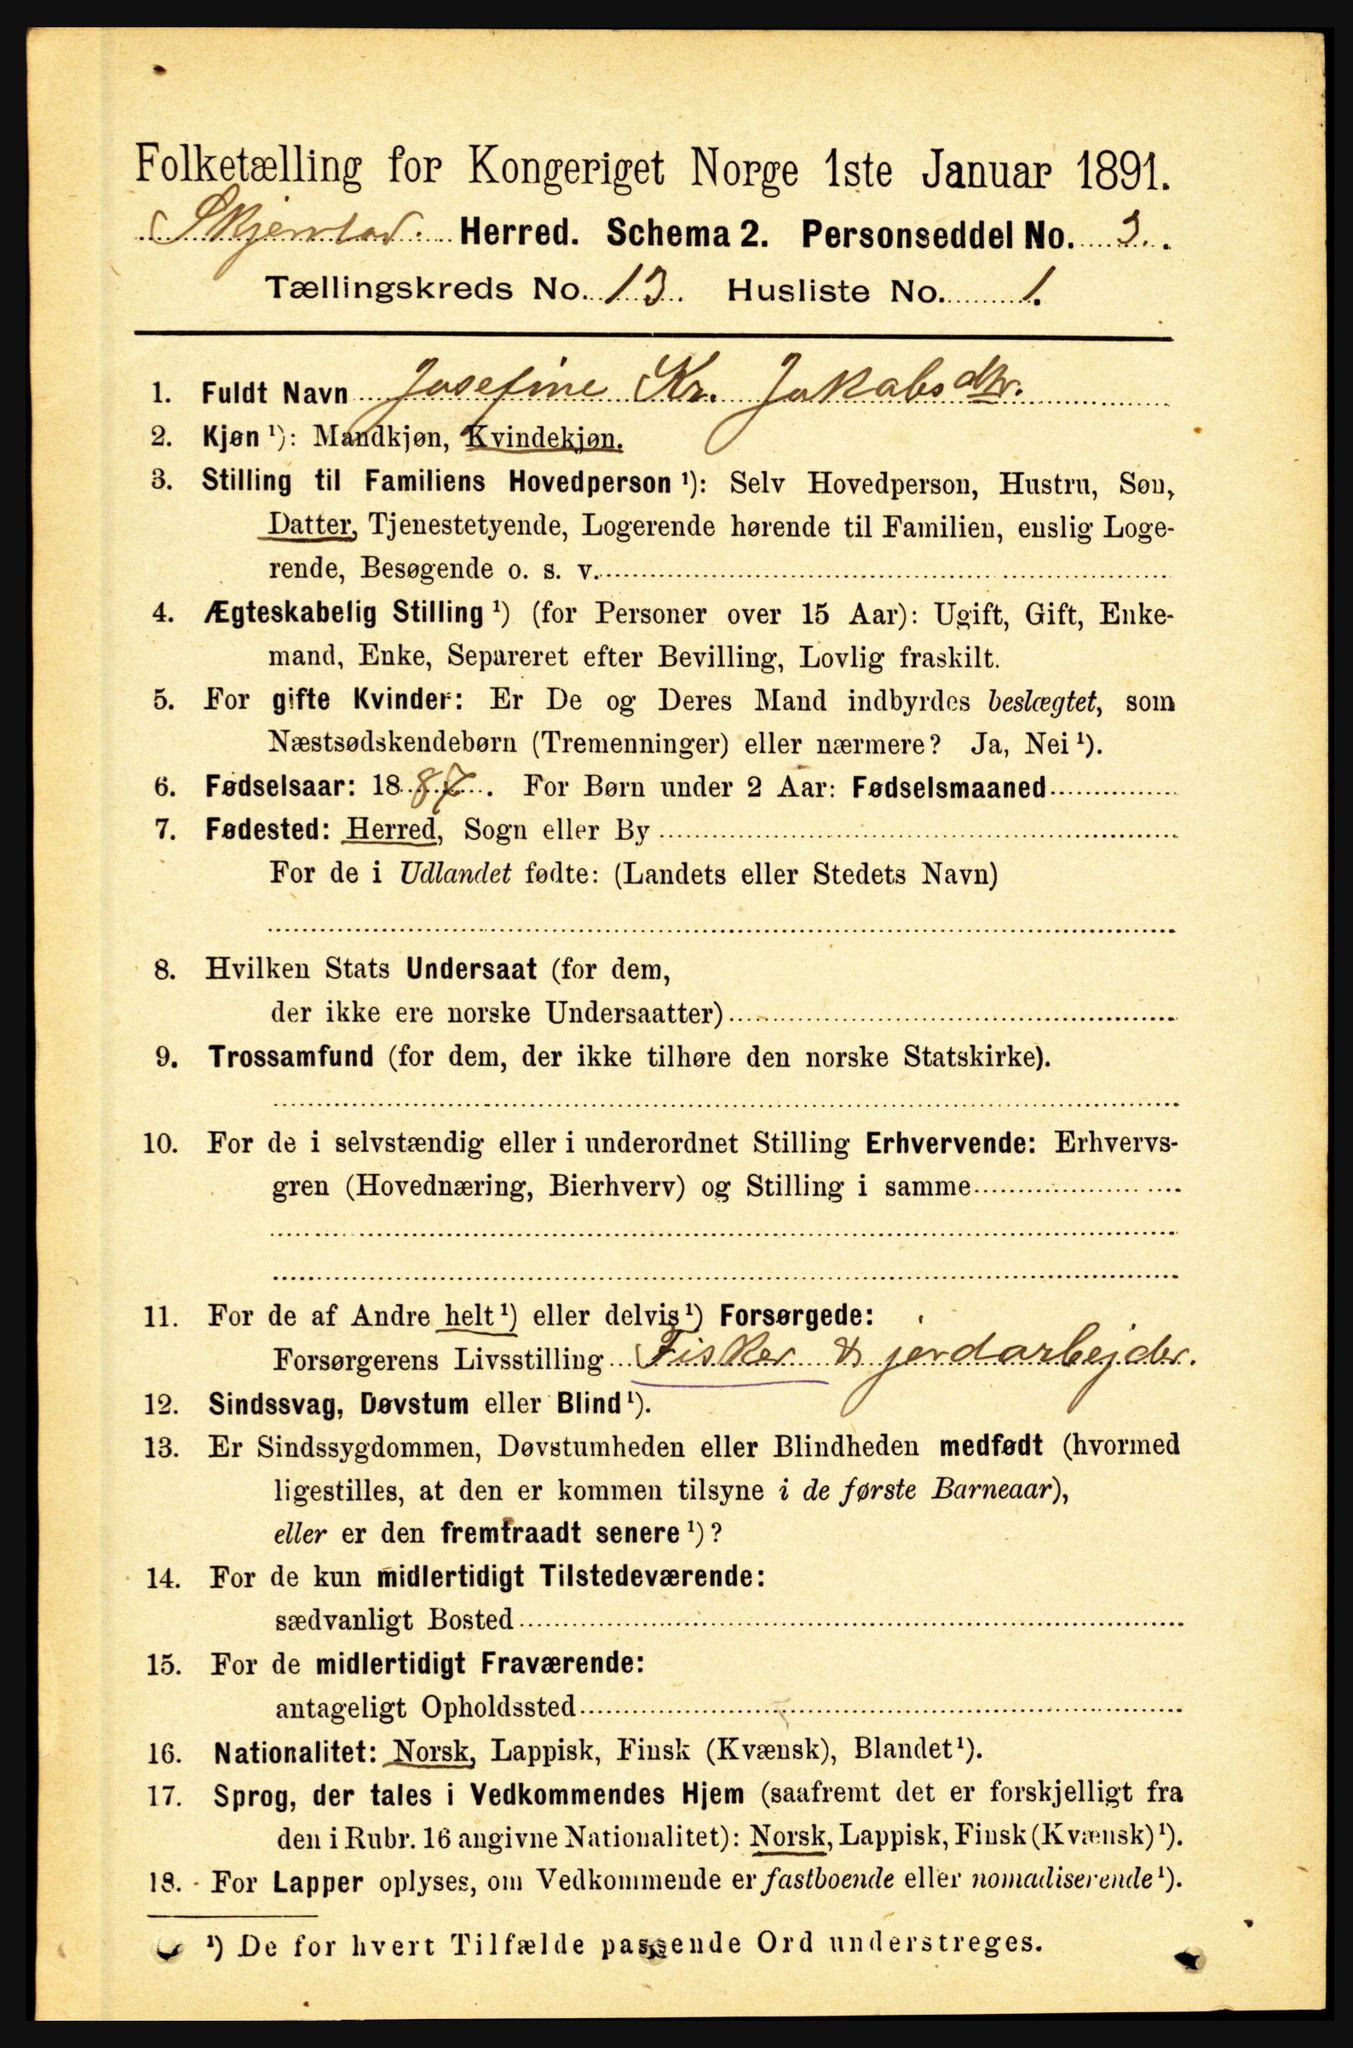 Folketælling for Kongeriget Norge 1ste Januar 1891.
Skjerstad. Herred. Schema 2. Personseddel No. 3.
Tællingskreds No. 13. Husliste No. 1.
1. Fuldt Navn Josefine Kr. Jakobsdtr.
2. Kjøn ¹): Mandkjøn, Kvindekjøn.
3. Stilling til Familiens Hovedperson ¹): Selv Hovedperson, Hustru, Søn,
Datter, Tjenestetyende, Logerende hørende til Familien, enslig Loge-
rende, Besøgende o. s. v.
4. Ægteskabelig Stilling ¹) (for Personer over 15 Aar): Ugift, Gift, Enke-
mand, Enke, Separeret efter Bevilling, Lovlig fraskilt.
5. For gifte Kvinder: Er De og Deres Mand indbyrdes beslægtet, som
Næstsødskendebørn (Tremenninger) eller nærmere? Ja, Nei ¹).
6. Fødselsaar: 1887. For Børn under 2 Aar: Fødselsmaaned
7. Fødested: Herred, Sogn eller By
For de i Udlandet fødte: (Landets eller Stedets Navn)
8. Hvilken Stats Undersaat (for dem,
der ikke ere norske Undersaatter)
9. Trossamfund (for dem, der ikke tilhøre den norske Statskirke).
10. For de i selvstændig eller i underordnet Stilling Erhvervende: Erhvervs-
gren (Hovednæring, Bierhverv) og Stilling i samme
11. For de af Andre helt ¹) eller delvis ¹) Forsørgede:
Forsørgerens Livsstilling Fisker & jordarbejder.
12. Sindssvag, Døvstum eller Blind ¹).
13. Er Sindssygdommen, Døvstumheden eller Blindheden medfødt (hvormed
ligestilles, at den er kommen tilsyne i de første Barneaar),
eller er den fremtraadt senere ¹)?
14. For de kun midlertidigt Tilstedeværende:
sædvanligt Bosted
15. For de midlertidigt Fraværende:
antageligt Opholdssted
16. Nationalitet: Norsk, Lappisk, Finsk (Kvænsk), Blandet ¹).
17. Sprog, der tales i Vedkommendes Hjem (saafremt det er forskjelligt fra
den i Rubr. 16 angivne Nationalitet): Norsk, Lappisk, Finsk (Kvænsk) ¹).
18. For Lapper oplyses, om Vedkommende er fastboende eller nomadiserende ¹).
¹) De for hvert Tilfælde passende Ord understreges.